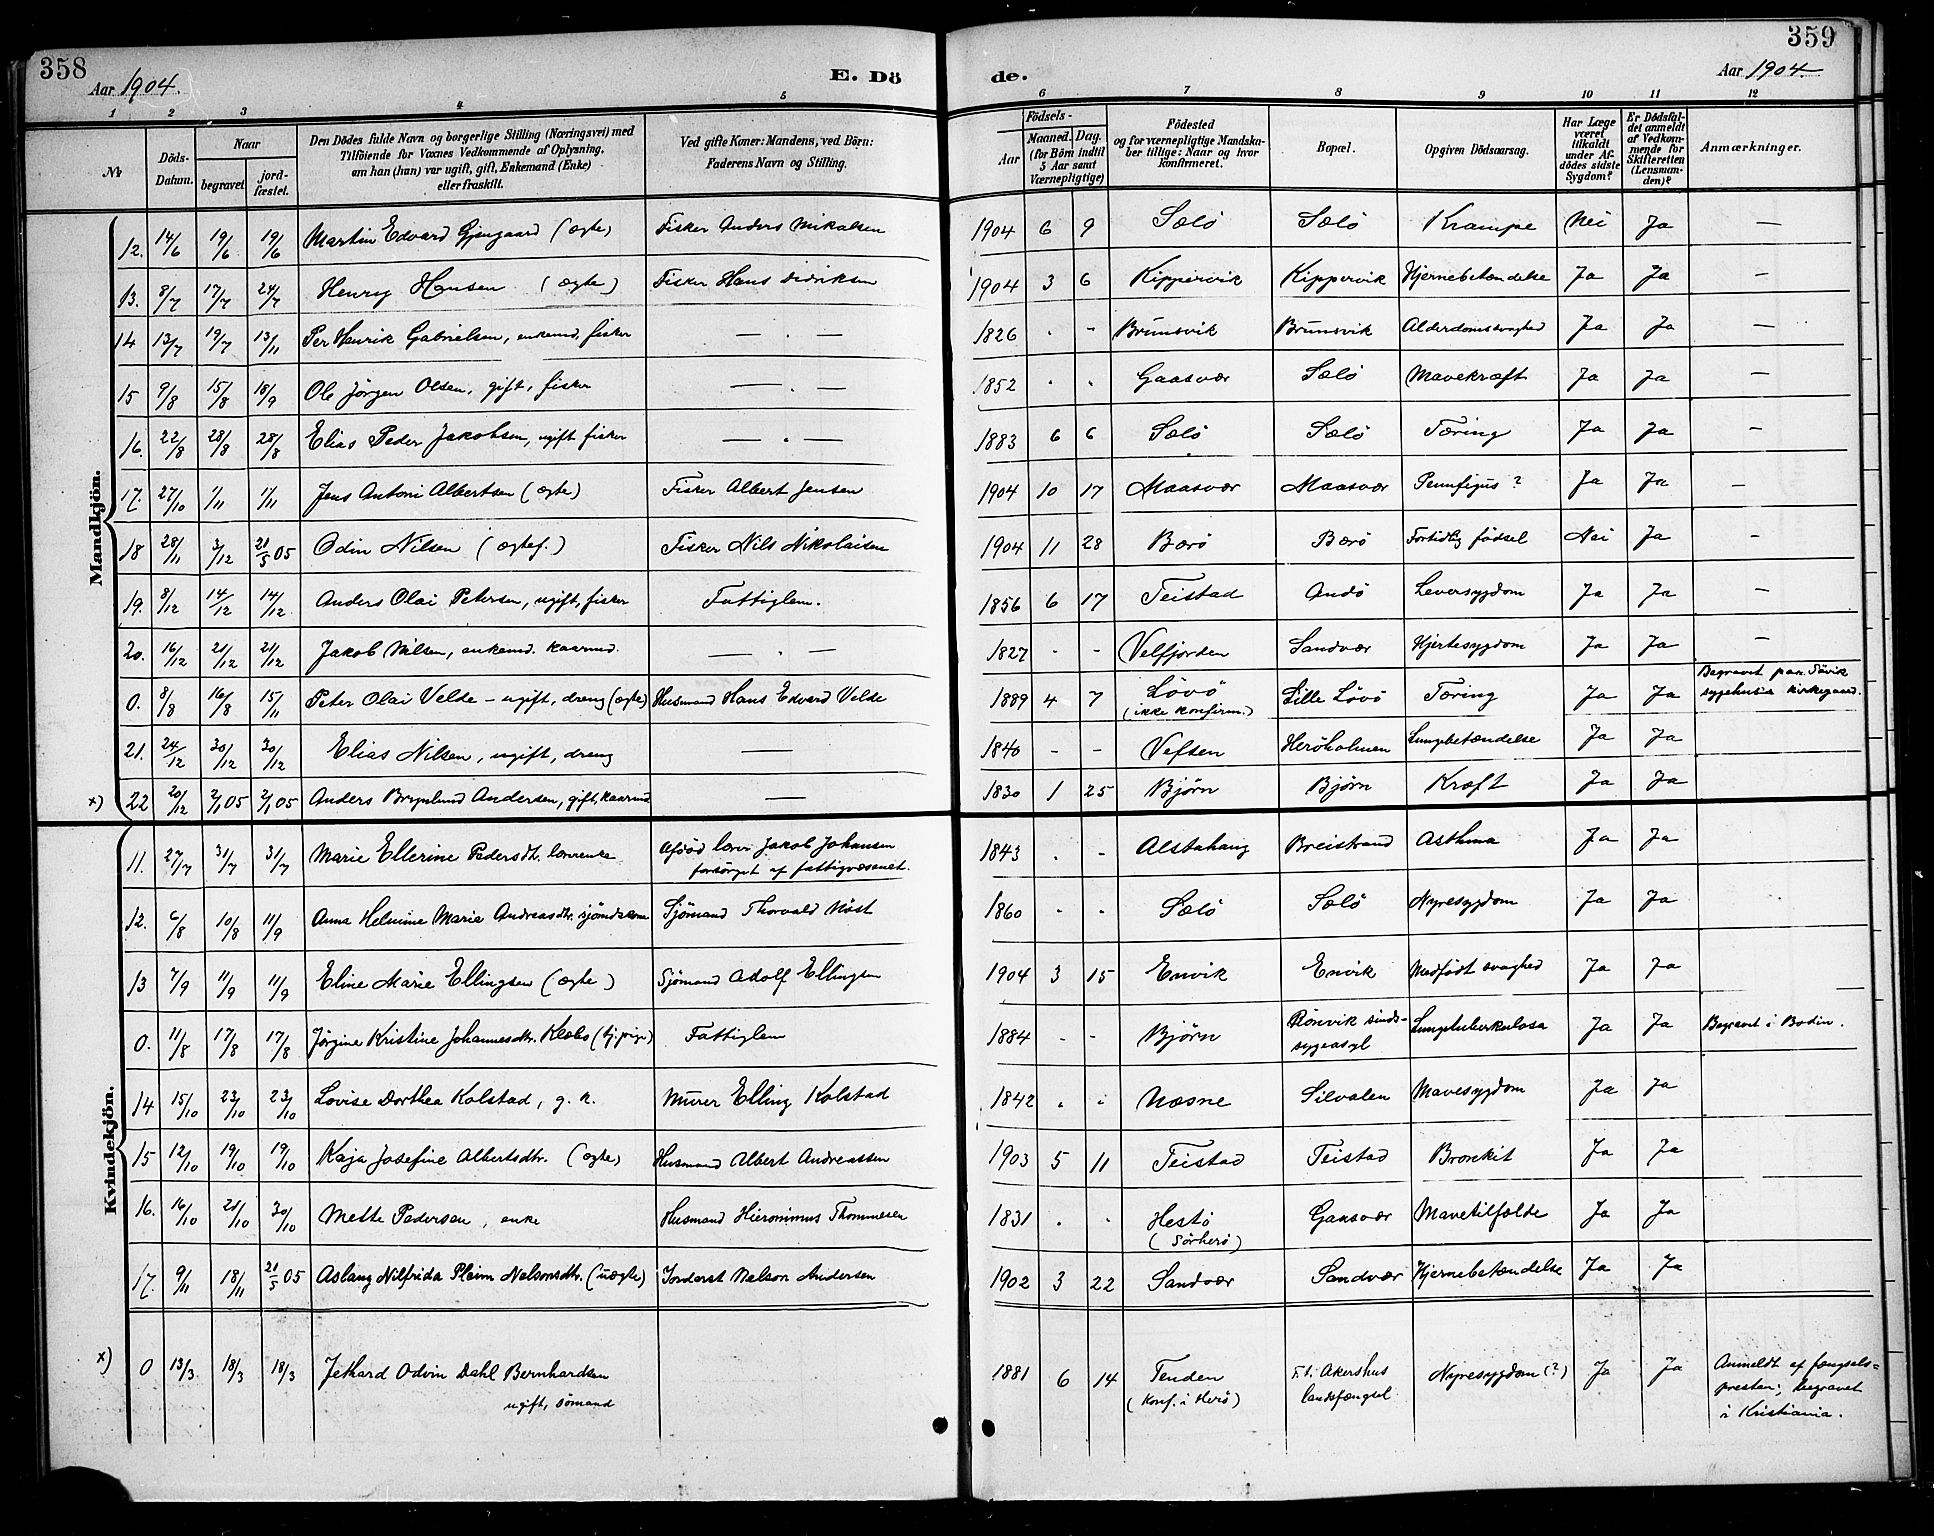 358
Aar 1904.
E. Dö
1 2 3 4 5
№
Döds-
Datum.
Naar
begravet
jord-
fæstet.
Den Dödes fulde Navn og borgerlige Stilling (Næringsvei) med
Tilföiende for Voxnes Vedkommende af Oplysning,
om han (hun) var ugift, gift, Enkemand (Enke)
eller fraskilt.
Ved gifte Koner: Mandens, ved Börn:
Faderens Navn og Stilling.
Mandkjön.
12. 14/6 19/6 19/6 Martin Edvard Gjengaard (ægte) Fisker Anders Mikalsen
13. 8/7 17/7 24/7 Henry Hansen (ægte) Fisker Hans Didriksen
14 13/7 19/7 13/11 Per Henrik Gabrielsen, enkemd, fisker — . —
15 9/8 15/8 18/9 Ole Jörgen Olsen, gift, fisker — . —
16. 22/8 28/8 28/8 Elias Peder Jakobsen, ugift fisker — . —
17. 27/10 1/11 1/11 Jens Antoni Albertsen (ægte) Fisker Albert Jensen
18 28/11 3/12 21/5 05 Odin Nilsen (ægtef.) Fisker Nils Nikolaisen
19. 8/12 14/12 14/12 Anders Olai Petersen, ugift, fisker Fattiglem.
20. 16/12 21/12 21/12 Jakob Nilsen, enkemd. kaarmd. — . —
0. 8/8 16/8 15/11 Peter Olai Velde - ugift, dreng (ægte) Husmand Hans Edvard Velde
21. 24/12 30/12 30/12 Elias Nilsen, ugift, dreng —
x) 22 20/12 2/1 05 2/1 05 Anders Brynlund Andersen, gift, kaarmd —
Kvindekjön.
11. 27/7 31/7 31/7 Marie Ellerine Pedersdtr. lærerenke Aföd lærer Jakob Johansen
forsörget af fattigvæsenet.
12. 6/8 10/8 11/9 Anna Helmine Marie Andreasdtr. sjömdskone Sjömand Thorvald Möst
13 7/9 11/9 11/9 Eline Marie Ellingsen (ægte) Sjömand Adolf Ellingsen
0. 11/8 17/8 17/8 Jörgine Kristine Johannesdtr. Klæbo (tj.pige) Fattiglem
14 15/10 23/10 23/10 Lovise Dorthea Kolstad, g. k. Murer Elling Kolstad
15 12/10 19/10 19/10 Kaja Josefine Albertsdtr. (ægte) Husmand Albert Andreassen
16. 16/10 21/10 30/10 Mette Pedersen, enke Husmand Hieronimus Thommesen
17. 9/11 18/11 21/5 05 Aslaug Nilfrida Pleim Nelsonsdtr. (uægte) Jordarb Nelson Andersen
x) 0 13/3 18/3 18/3 Jethard Odvin Dahl Bernhardsen
ugift, sömand
359
de.
Aar 1904.
6 7 8 9 10 11 12
Födsels-
Aar
Maaned. Dag.
(for Börn indtil
5 Aar samt
Værnepligtige)
Födested
og for værnepligtige Mandska-
ber tillige: Naar og hvor
konfirmeret.
Bopæl.
Opgiven Dödsaarsag.
Har Læge
været
tilkaldt
under Af-
dödes sidste
Sygdom?
Er Dödsfal-
det anmeldt
af Vedkom-
mende for
Skifteretten
(Lensman-
den)?
Anmærkninger.
1904 6 9 Sælö Sælö Krampe Nei Ja —
1904 3 6 Kippervik Kippervik Hjernebetændelse Ja Ja —
1826 . - Brunsvik Brunsvik Alderdomssvaghed Ja Ja —
1852 . . Gaasvær Sælö Mavekræft Ja Ja —
1883 6 6 Sælö Sælö Tæring Ja Ja —
1904 10 17 Maasvær Maasvær Pemfigus? Ja Ja —
1904 11 28 Bærö Bærö Fortidlig födsel Nei Ja -
1856 6 17 Teistad Andö Leversygdom Ja Ja —
1827 - - Velfjorden Sandvær Hjertesygdom Ja Ja —
1889 4 7 Lövö Lille Lövö Tæring Ja Ja Begravet paa Sövik
(ikke konfirm.) sygehuses kirkegaard.
1840 - - Vefsen Heröholmen Lungebetændelse Ja Ja
1830 1 25 Bjørn Bjørn Kræft Ja Ja
1843 . . Alstahaug Breistrand Asthma Ja Ja
1860 . . Sælö Sælö Nyresygdom Ja Ja
1904 3 15 Envik Envik Medfödt svaghed Ja Ja
1884 - - Bjørn Rönvik sinds- Lungetuberkulose Ja Ja Begravet i Bodin.
sygeasyl
1842 . . Næsne Silvalen Mavesygdom Ja Ja
1903 5 11 Teistad Teistad Bronkit Ja Ja
1831 . . Hestö Gaasvær Mavetilfælde Ja Ja
(Sörherö)
1902 3 22 Sandvær Sandvær Hjernebetændelse Ja Ja
1881 6 14 Tenden F.t. Akershus Nyresygdom (?) Ja Ja Anmeldt af fængsels-
(Konf. i Herö) landsfængsel presten; begravet
i Kristiania.